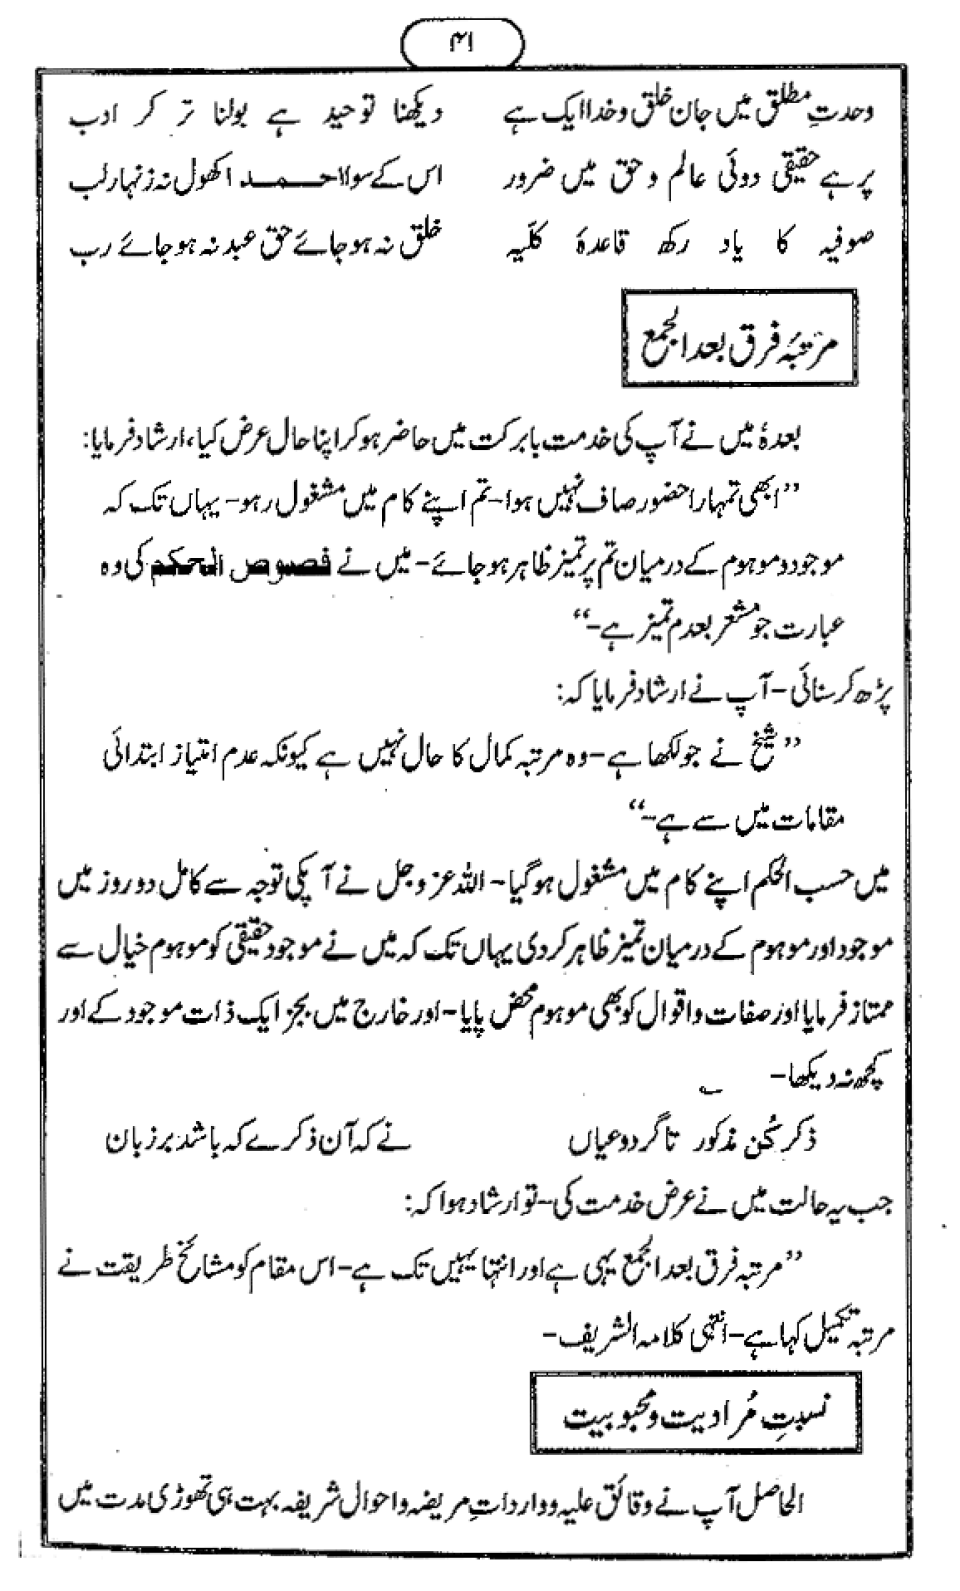 ۴۱
وحدتِ مطلق میں جان خلق و خدا ایک ہے دیکھنا توحید ہے بولنا تر کر ادب
پر ہے حقیقی دوئی عالم و حق میں ضرور اس کے سوا احمد اکھول نہ زنہار لب
صوفیہ کا یاد رکھ قاعدۂ کلّیہ خلق نہ ہو جائے حق عبد نہ ہو جائے رب
مرتبۂ فرق بعد الجمع
بعدہٗ میں نے آپ کی خدمت بابرکت میں حاضر ہو کر اپنا حال عرض کیا، ارشاد فرمایا:
”ابھی تمہارا حضور صاف نہیں ہوا- تم اپنے کام میں مشغول رہو- یہاں تک کہ
موجود و موہوم کے درمیان تم پر تمیز ظاہر ہو جائے- میں نے فصوص الحکم کی وہ
عبارت جو مشعر بعدم تمیز ہے-“
پڑھ کر سنائی- آپ نے ارشاد فرمایا کہ:
”شیخ نے جو لکھا ہے- وہ مرتبہ کمال کا حال نہیں ہے کیونکہ عدم امتیاز ابتدائی
مقامات میں سے ہے-“
میں حسب الحکم اپنے کام میں مشغول ہو گیا- اللہ عزوجل نے آپکی توجہ سے کامل دو روز میں
موجود اور موہوم کے درمیان تمیز ظاہر کر دی یہاں تک کہ میں نے موجود حقیقی کو موہوم خیال سے
ممتاز فرمایا اور صفات و اقوال کو بھی موہوم محض پایا- اور خارج میں بجز ایک ذات موجود کے اور
کچھ نہ دیکھا- ؎
ذکر کُن مذکور تا گردد عیاں نے کہ آن ذکرے کہ باشد بر زبان
جب یہ حالت میں نے عرض خدمت کی- تو ارشاد ہوا کہ:
”مرتبہ فرق بعد الجمع یہی ہے اور انتہا یہیں تک ہے- اس مقام کو مشائخ طریقت نے
مرتبہ تکمیل کہا ہے- انتہی کلامہ الشریف-
نسبتِ مُرادیت و محبوبیت
الحاصل آپ نے وقائق علیہ و وارداتِ مریضہ و احوال شریفہ بہت ہی تھوڑی مدت میں